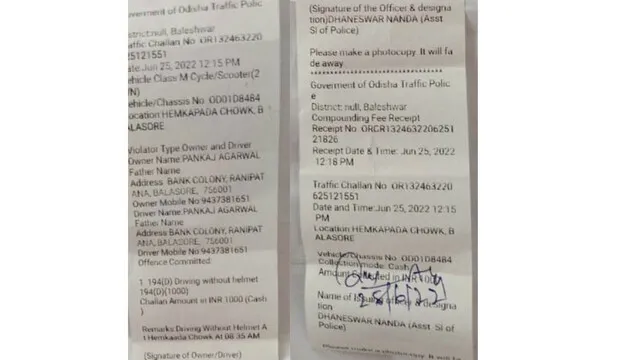 overnment of Odisha Traffic Polic
istrict:null, Baleshwar
raffic Challan No OR132463220
625121551
ate:Jun 25, 2022 12:15 PM
ehicle Class M-Cycle/Scooter(2
ehicle/Chassis No OD01D8484
Location HEMKAPADA CHOWK, B
ALASORE
Violator Type Owner and Driver
Owner Name:PANKAJ AGARWAL
Father Name
Address BANK COLONY, RANIPAT
ANA, BALASORE, 756001
Owner Mobile No 9437381651
Driver Name:PANKAJ AGARWAL
Father Name
Address BANK COLONY, RANIPAT
ANA, BALASORE, 756001
Driver Mobile No 9437381651
Offence Committed:
1 194(D) Driving without helmet
194(D)(1000)
Challan Amount in INR 1000 (Cash
)
Remarks Driving Without Helmet A
t Hemkapada Chowk At 08 35 AM
(Signature of Owner/Driver)
(Signature of the Officer & designa
tion)DHANESWAR NANDA (Asst
SI of Police)
Please make a photocopy. It will fa
de away
********************************
Goverment of Odisha Traffic Polic
e
District: null, Baleshwar
Compounding Fee Receipt
Receipt No. ORCR1324632206251
21826
Receipt Date & Time: Jun 25, 2022
12:18 PM
Traffic Challan No OR132463220
625121551
Date and Time:Jun 25, 2022 12:15
PM
Location HEMKAPADA CHOWK, B
ALASORE
Vehicle/Chassis No OD01D8484
Collection mode: Cash
Amount in INR 1000
25/6/22
Name of Issuing officer & designa
tion
DHANESWAR NANDA (Asst SI of
Police)
Please make a photocopy. It will fa